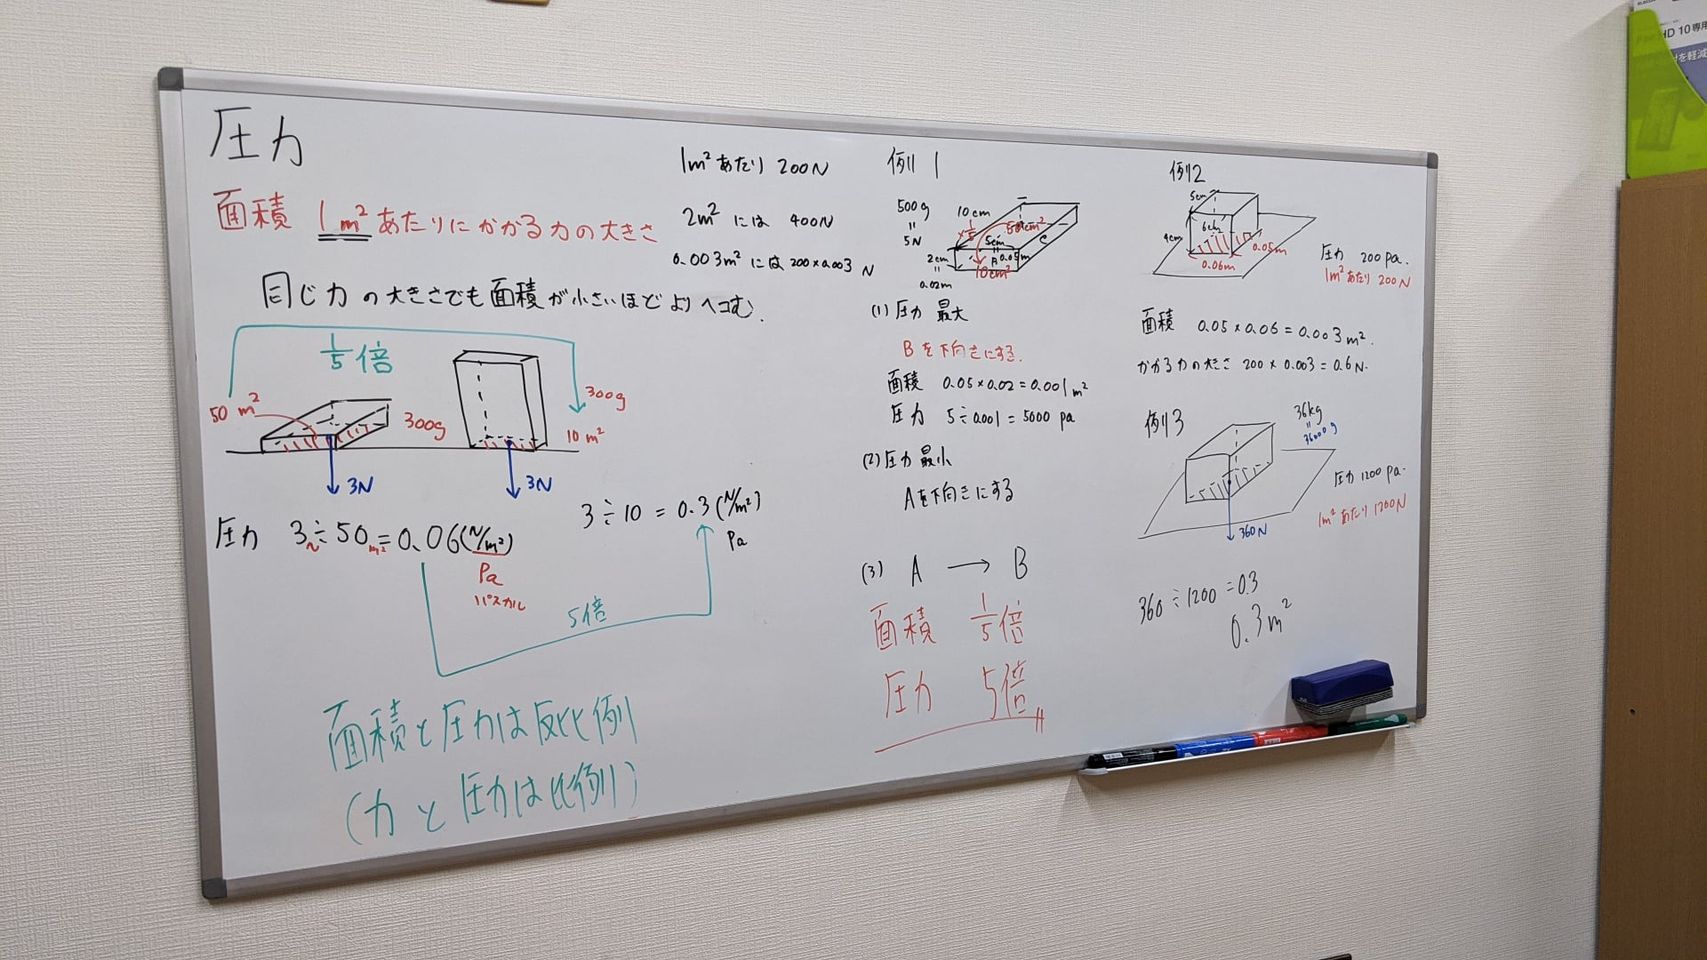 圧力
面積 1m²あたりにかかる力の大きさ
同じ力の大きさでも面積が小さいほどよりヘコむ.
1/5倍
50m²
300g
3N
300g
10m²
3N
圧力 3N÷50m²=0.06(N/m²)
Pa
パスカル
3÷10=0.3(N/m²)
Pa
5倍
面積と圧力は反比例
(力と圧力は比例)
1m²あたり 200N
2m²には 400N
0.003m²には 200×0.003 N
例1
500g
=
5N
10cm
×1/5
50cm²
5cm
0.05m
C
B
2cm
=
0.02m
10cm²
(1)圧力 最大
Bを下向きにする.
面積 0.05×0.02=0.001m²
圧力 5÷0.001=5000 pa
(2)圧力 最小
Aを下向きにする
(3) A → B
面積 1/5倍
圧力 5倍
例2
5cm
6cm
4cm
0.05m
0.06m
圧力 200pa.
1m²あたり 200N
面積 0.05×0.06=0.003m².
かかる力の大きさ 200×0.003=0.6N.
例3
36kg
=
36000g
圧力 1200pa.
1m²あたり 1200N
360N
360÷1200=0.3
0.3m²
HD 10専用
を軽減